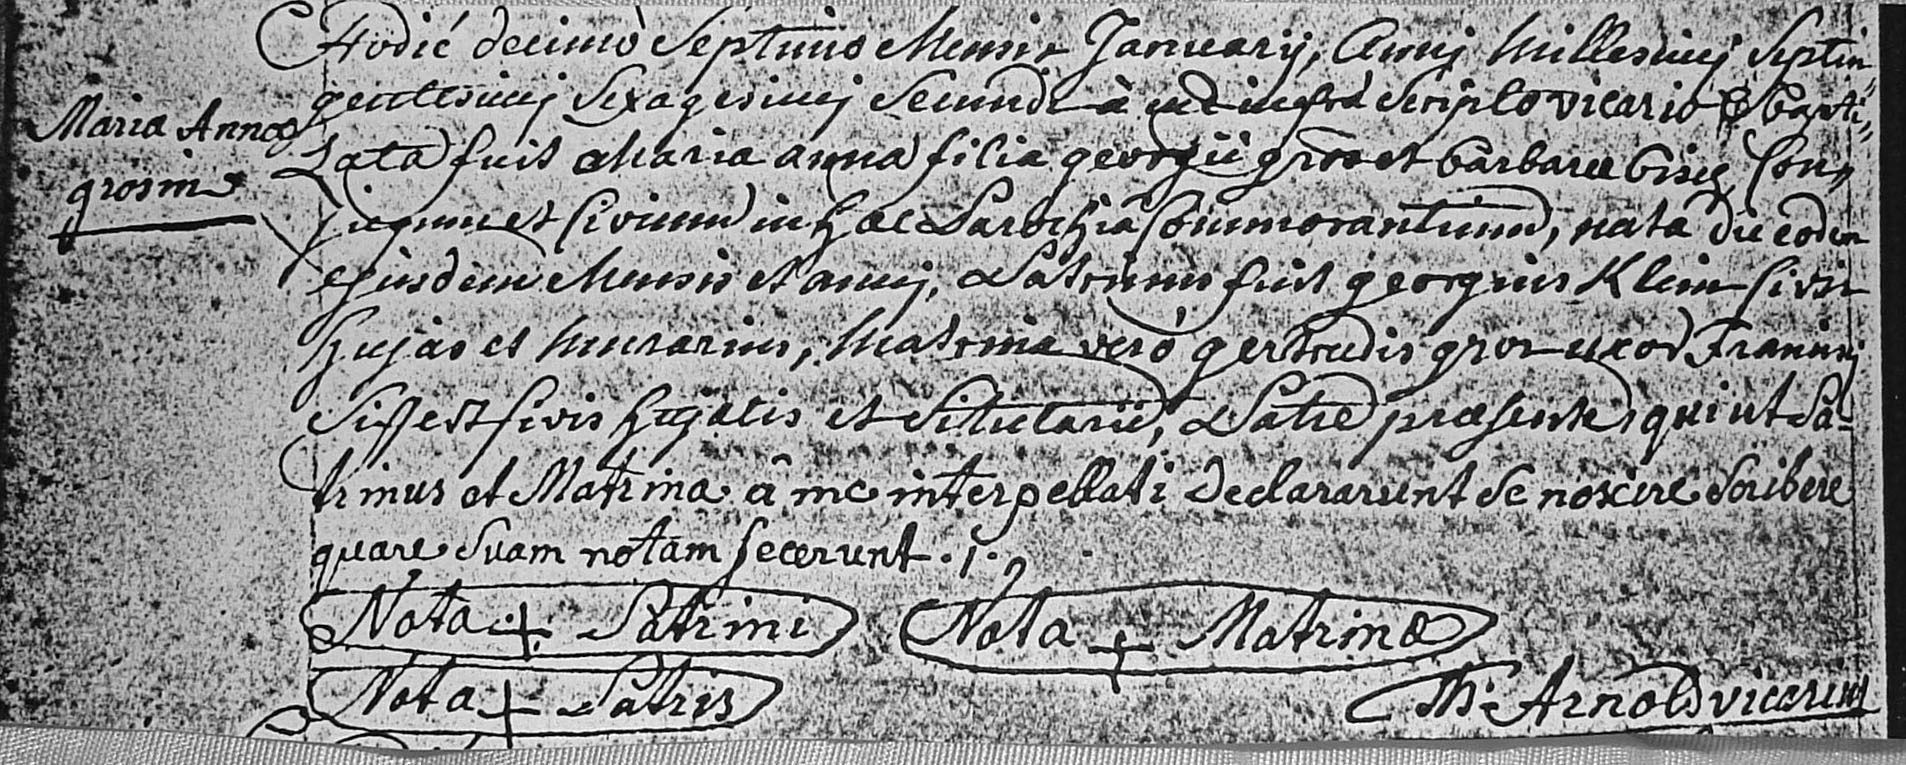 Hodie decimo Septimo Mensis Januarij, Annij Millesimij Septin„
Maria Anna
gentesimij Sexagesimij Secundi à me infra Scripto vicario Bapti„
grosin
zata fuit Maria anna filia georgii gros et barbaræ Con„
jugum et Civium in hac Parochia Commorantium, nata die eodem
ejusdem Mensis et annij, Patrinus fuit georgius Klein Civis
hujas et murarius, Matrina verò gertrudis gros uxor Francisci
Siffert Civis hujatis et, Patre præsente, qui ut Pa-
trinus et Matrina â me interpellati Declararunt Se noscire Scribere
quare Suam notam fecerunt
Nota + Patrini Nota + Matrinæ
Nota + Patris Th: Arnold vicarius